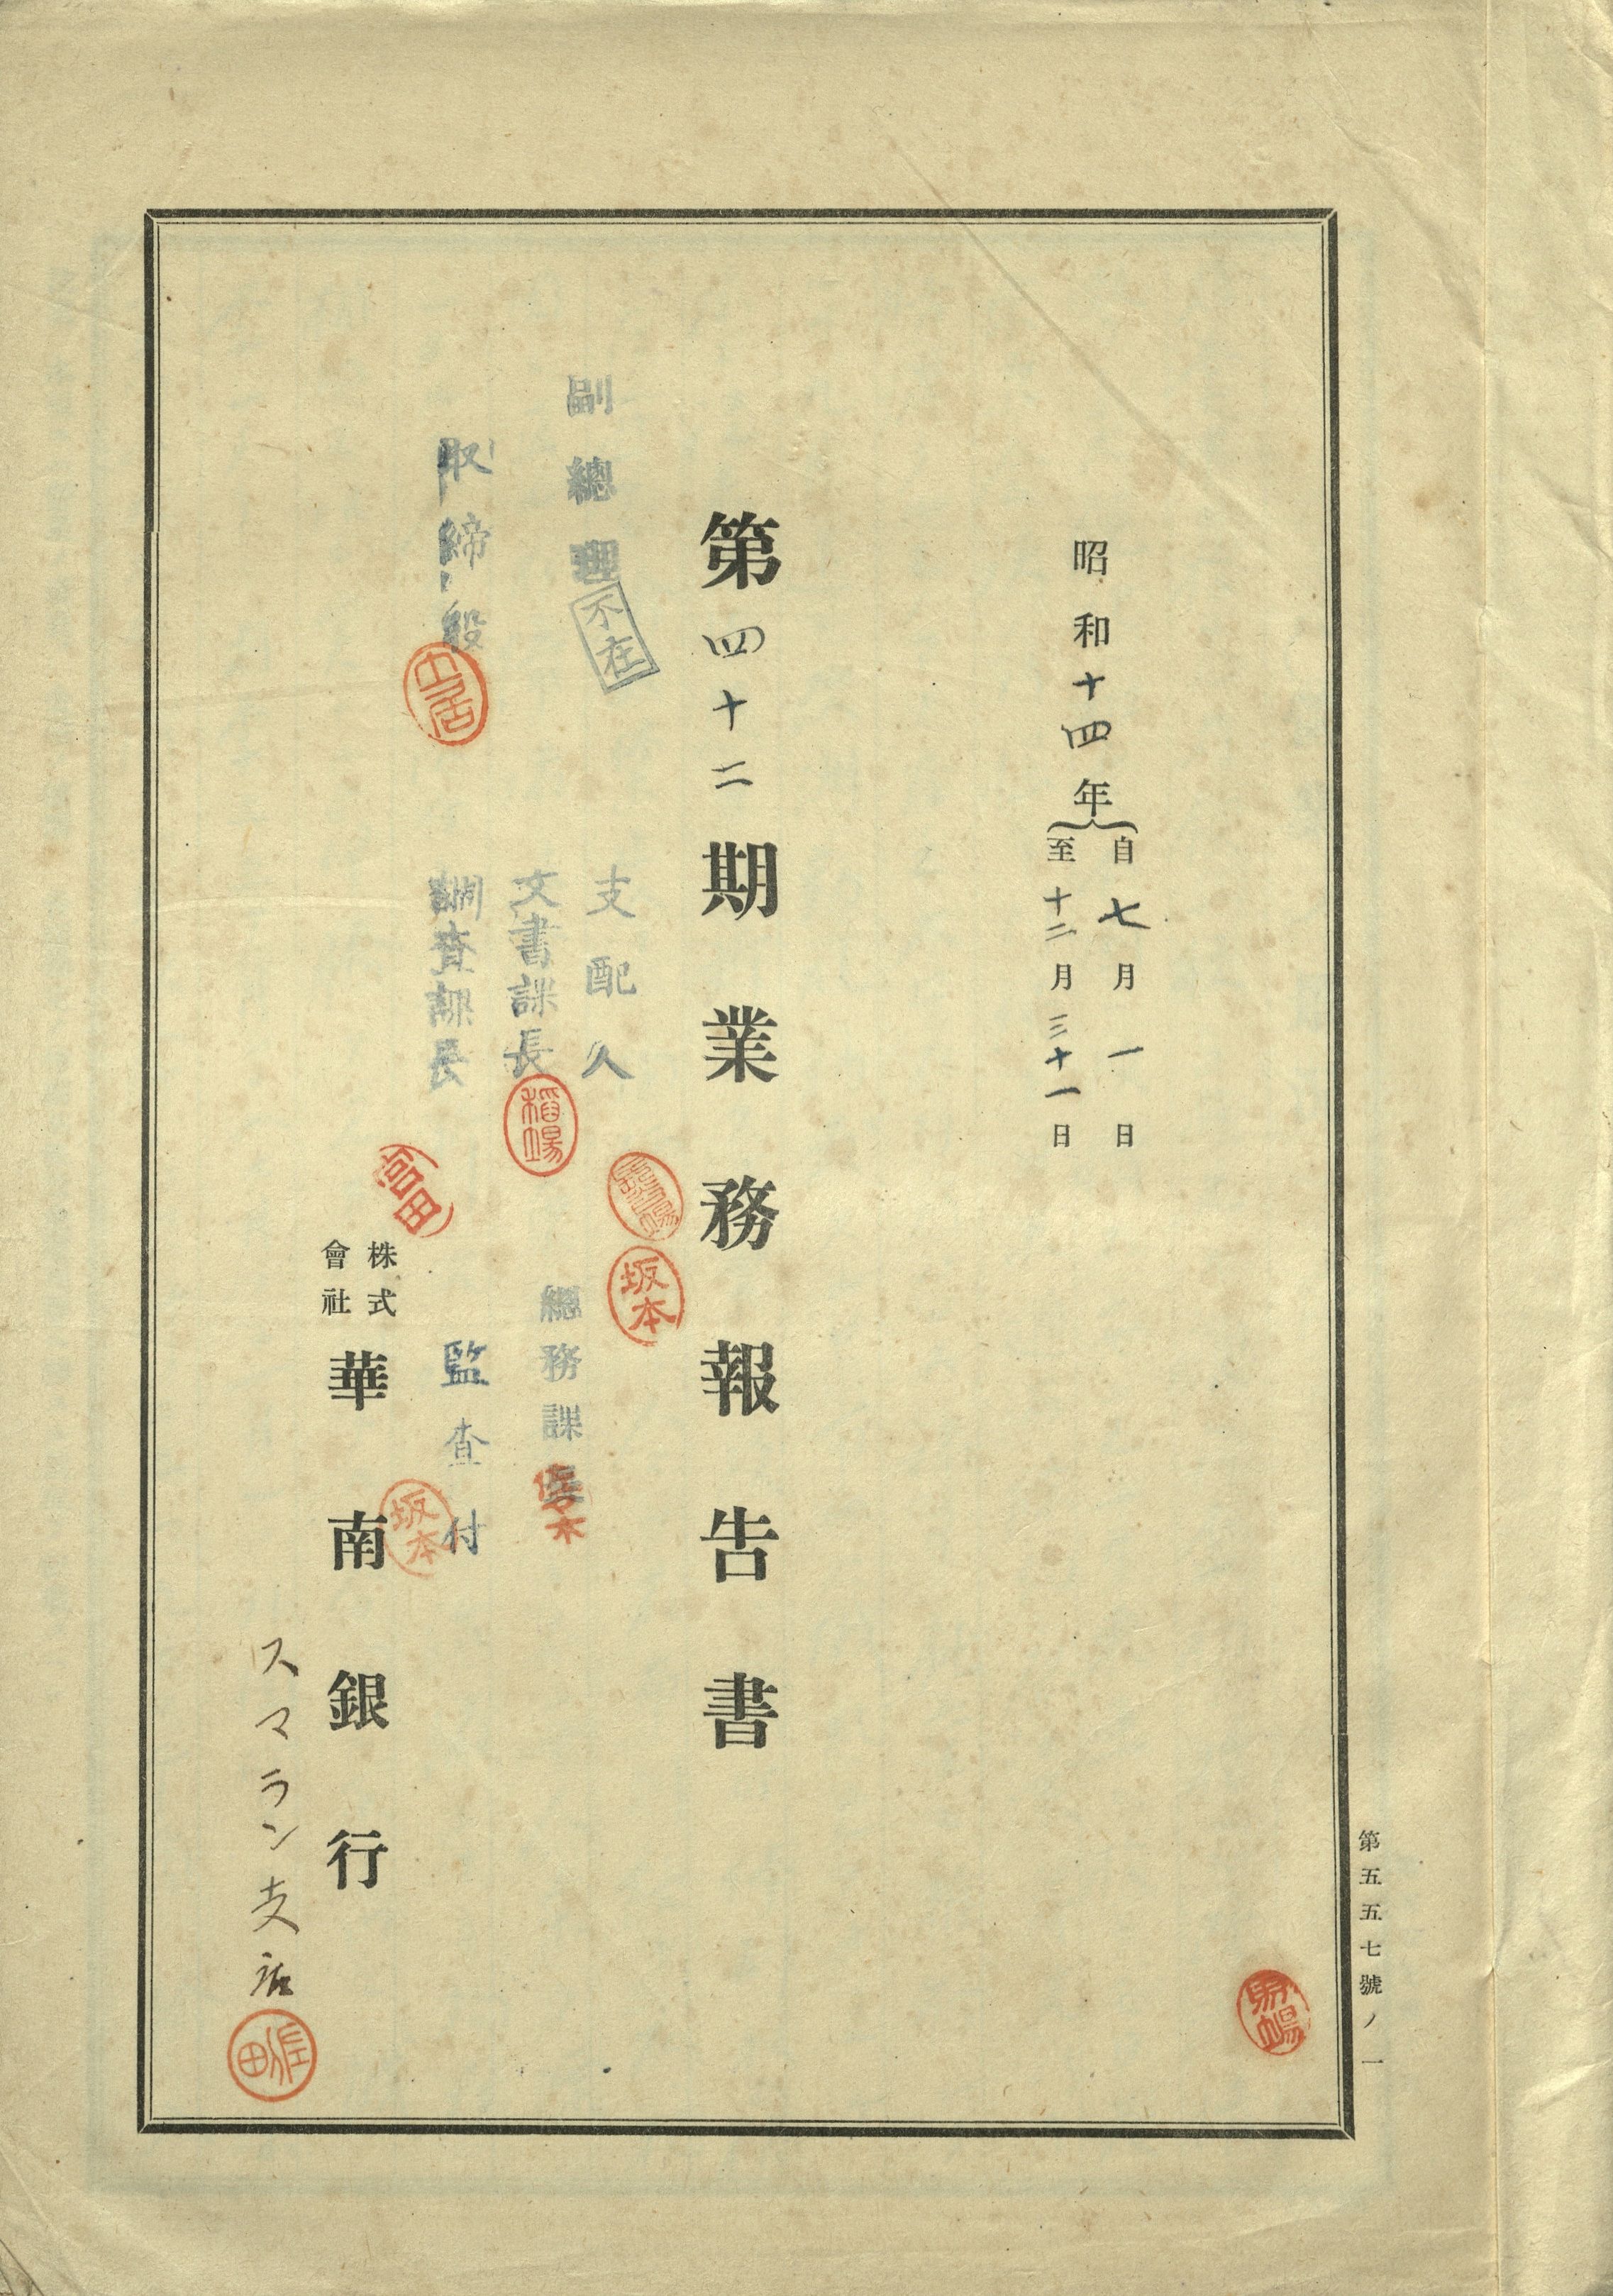 第五五七號ノ一
昭和十四年
自七月一日
至十二月三十一日
第四十二期業務報告書
副總理
不在
取締役
支配人
文書課長
稻場
調査課長
富田
坂本
總務課長
監査付
坂本
株式
會社
華南銀行
スマラン支店